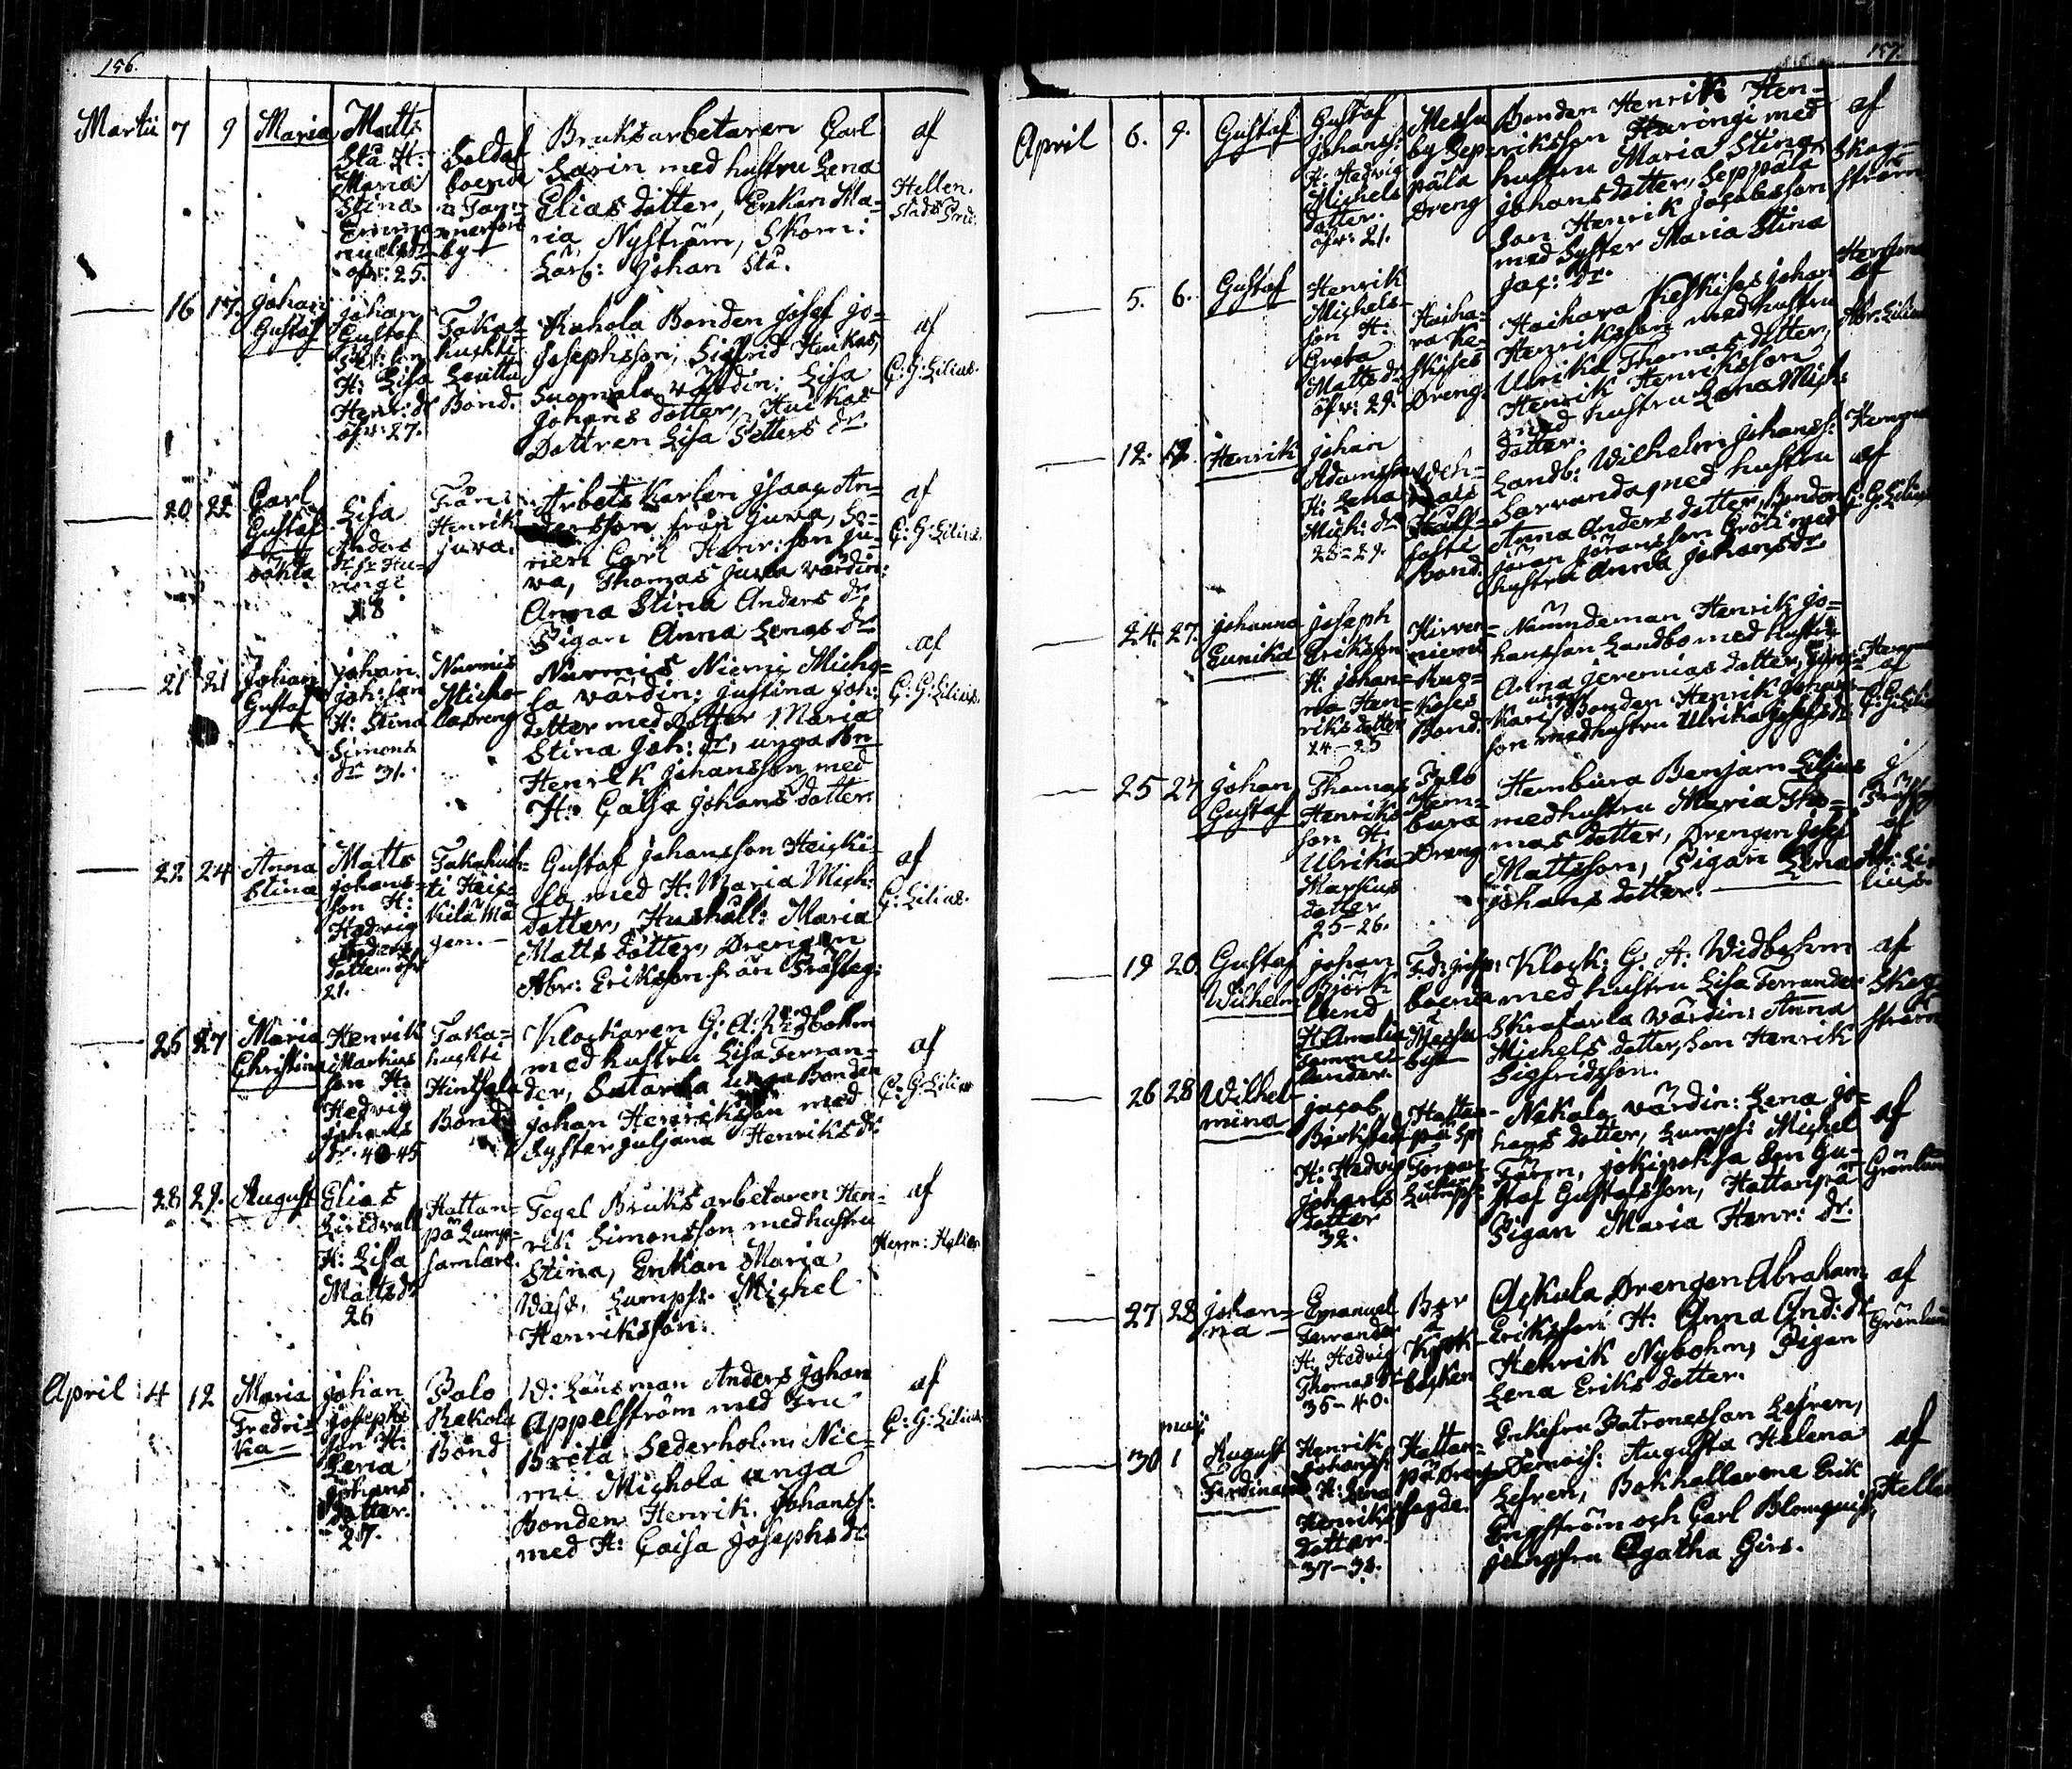 156.
Martii 7 9 Maria
Matts
Stå H:
Maria
Stina
öfv: 25.
Soldat
boende
i Tam-
by
Bruksarbetaren Carl
Sarin med hustru Lena
Elias dotter, Enkan Ma-
ria Nyström, Skom:
Lärl: Johan Stå.
af
Hellen.
16 17. Johan
Gustaf
Johan
Gustaf
H: Lisa
Henr: dr
öfv: 27.
Taka-
huhti
Bond.
Kahola Bonden Josef Jo-
Josephsson, Sigfrid Huikas,
Suomela värdin: Lisa
Johans dotter, Huikas
Dottren Lisa Petters dr
af
G: G: Lilius.
20 22 Carl
Gustaf
oäkta
Lisa
Anders
dr fr Hu-
ringi
18
Från
Henrik
Juva.
Arbets Karlen Isaac An-
dersson från Juva, So-
nen Carl Henr: son Ju-
va, Thomas Juva värdin:
Anna Stina Anders dr
Pigan Anna Lenas dr
af
G: G: Lilius.
21 21 Johan
Gustaf
Johan
Joh: son
H: Stina
Simons
dr 31.
Nurmis
Micho-
la Dreng
Nurmis Niemi Micho-
la värdin: Justina Joh:
dotter med Dotter Maria
Stina Joh: dr, unga Bn
Henrik Johansson med
H: Caisa Johans dotter.
af
G: G: Lilius.
22 24 Anna
Stina
Matts
Johans-
son H:
Hedvig
Anders
dotter öfv
21.
Takahuh-
ti Heic-
kilä Må
gen.
Gustaf Johansson Heicki-
lä med H: Maria Mich:
dotter, Hushåll: Maria
Matts dotter, Drengen
Abr: Eriksson från Prästeg:
af
G: Lilius.
26 27 Maria
Christina
Henrik
Markus
son H:
Hedvig
Johans
dr. 40-45
Taka-
huchti
Hintsala
Bond
Klockaren G: A: Widbohm
med hustru Lisa Ferran-
der, Satarla unga Bonden
Johan Henriksson med
Syster Juliana Henriks dr.
af
G: G: Lilius
28 29. August
Elias
Lindvall
H: Lisa
Matts dr
26
Hattan-
pä Lump-
samlare.
Tegel Bruks arbetaren Hen-
rik Simonsson med hustru
Stina, Enkan Maria
Wass, Lumps. Michel
Henriksson.
af
Herm: Helin
April 4 12 Maria
Fredri-
ka
Johan
Josephs
son H:
Lena
Johans
dotter.
27.
Palo
Kakola
Bond
W: Länsman Anders Johan
Appelström med Fru
Brita Sederholm, Nie-
mi Michola unga
Bonden Henrik Johanss:
med H: Caisa Josephs dr
af
G: G: Lilius
157.
April 6. 9. Gustaf
Gustaf
Johanss:
H: Hedvig
Michels
dotter.
öfv: 21.
Messu
by Sep-
pälä
Dreng
Bonden Henrik Hen-
riksson Huringi med
hustru Maria Stina
Johans dotter, Seppälä
Son Henrik Jacobsson
med Syster Maria Stina
Jac: dr.
af
Skog-
ström
5. 6. Gustaf
Henrik
Michels-
son H:
Greta
Matts dr
öfv: 29.
Haiha-
ra Ke-
skises
Dreng
Haihara Keskises Johan
Henriksson med hustru
Ulrika Thomas dotter,
Henrik Henriksson
med hustru Lena Mich:
dotter.
af
Abr: Lilius
12. 12. Henrik
Johan
Adamsson
H: Lena
Mich: dr
28-29.
Bond.
Landb: Wilhelm Johanss:
Sarvanda, med hustru
Anna Anders dotter, Bonden
Jöran Jöransson Gröti med
hustru Anna Johans dr.
af
G: G: Lilius
24. 27. Johanna
Eunika
Joseph
Eriksson
H: Johan-
na Hen-
riks dotter
24-25
Hirven-
niemi
Bond.
Nämndeman Henrik Jo-
hansson Landbo med hustru
Anna Jeremias dotter,
unga Bonden Henrik Johans-
son med hustru Ulrika Josephs dr
af
G: G: Lilius
25 27 Johan
Gustaf
Thomas
Henriks
son H:
Ulrika
Markus
dotter
25-26.
Palo
Hem-
bura
Dreng
Hembura Benjam Lilius
med hustru Maria Tho-
mas dotter, Drengen Josef
Mattsson, Pigan Lena
Johans dotter.
af
Abr: Li-
lius.
19 20. Gustaf
Wilhelm
Johan
Björk
lund
H: Amalia
Sammel-
lander.
boende
Messu
by
Klock: G: A: Widbohm
med hustru Lisa Ferrander
Skrafarla värdin: Anna
Michels dotter, Son Henrik
Sigfridsson.
af
Skog-
ström
26 28 Wilhel-
mina
Jacob
Björkstedt
H: Hedvig
Johans
dotter
32.
Hattan-
pä Sp:
Torpar
Lumps:
Nekala värdin: Lena Jo-
hans dotter, Lumps: Michel
Färm, Jokipohja Son Gu-
staf Gustafsson, Hattanpä
Pigan Maria Henr: dr.
af
Grönlund
27 28 Johan-
na
Emanuel
Ferrander
H: Hedvig
Thomas dr
36-40.
Ackula Drengen Abraham
Eriksson H: Anna And: dr
Henrik Nybohm, Pigan
Lena Eriks dotter.
af
Grönlund
maji
30 1 August
Ferdinand
Henrik
Johanss:
H: Lena
Henriks
dotter.
37-38.
Hattan-
pä Dreng
Enkefru Patronessan Lefren,
Demois: Augusta Helena
Lefren, Bokhållarene Erik
Engström och Carl Blomquist,
Jungfru Agatha Girs.
af
Hellen